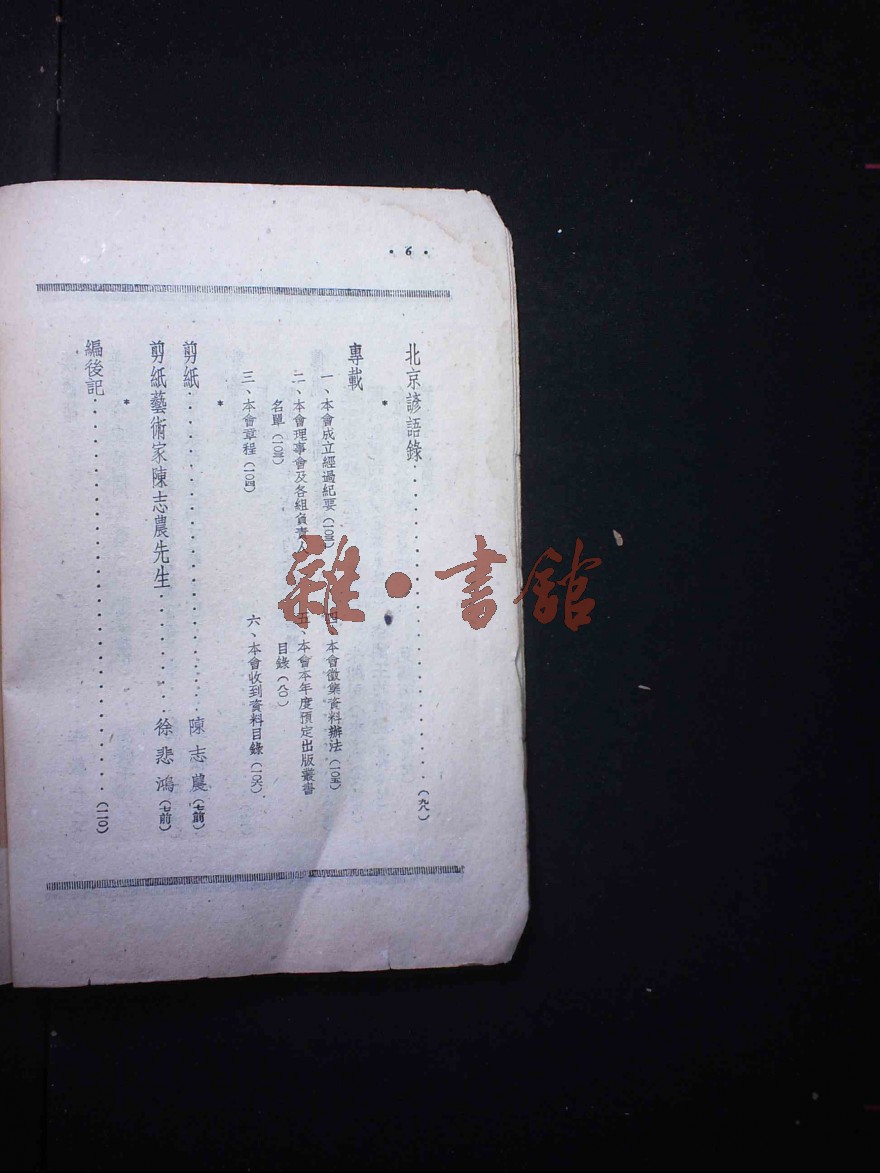 • 6 •
北京諺語錄……………………(九八)
*
專載
一、本會成立經過紀要(一〇三)
二、本會理事會及各組負責人
名單(一〇三)
三、本會章程(一〇四)
四、本會徵集資料辦法(一〇五)
五、本會本年度預定出版叢書
目錄(八〇)
六、本會收到資料目錄(一〇六)
*
剪紙……………………陳志農(七前)
剪紙藝術家陳志農先生…………徐悲鴻(七前)
*
編後記……………………(一一〇)
雜·書館